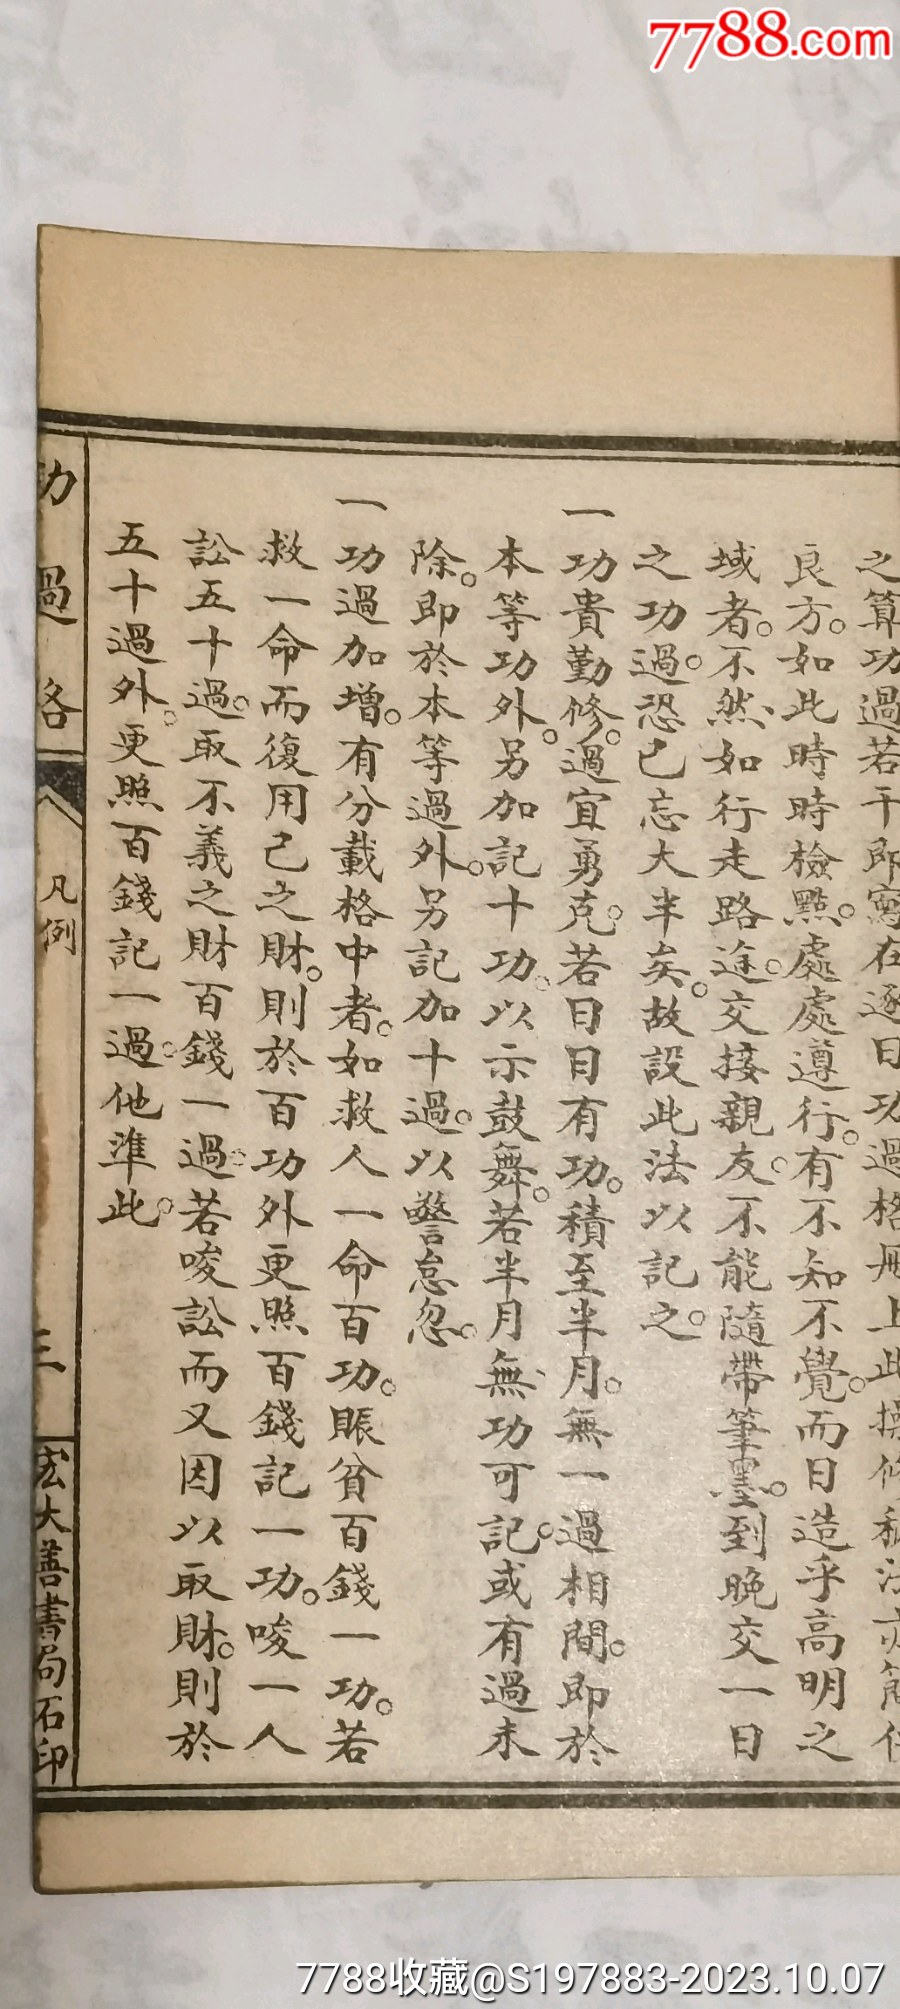 7788.com
之算功過若干即寫在逐日功過格冊上此操修
良方。如此時時檢點。處處遵行。有不知不覺而日造乎高明之
域者。不然如行走路途。交接親友。不能隨帶筆墨。到晚交一日
之功過。恐已忘大半矣。故設此法以記之。
一功貴勤修。過宜勇克。若日日有功。積至半月。無一過相間。即於
本等功外。另加記十功。以示鼓舞。若半月無功可記。或有過未
除。即於本等過外。另記加十過。以警怠忽。
一功過加增。有分載格中者。如救人一命百功。賑貧百錢一功。若
救一命而復用己之財。則於百功外更照百錢記一功。唆一人
訟五十過。取不義之財百錢一過。若唆訟而又因以取財。則於
五十過外。更照百錢記一過。他準此。
功過格 凡例 三 宏大善書局石印
7788收藏@S197883-2023.10.07